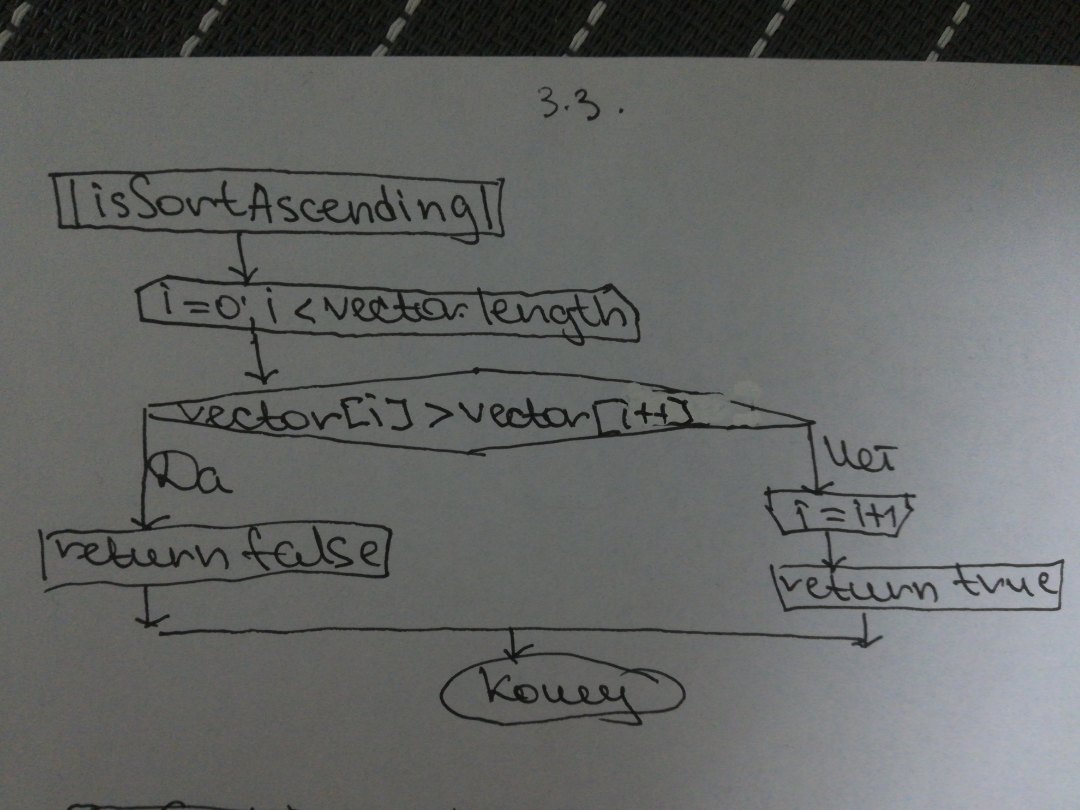 3.3.
isSortAscending
i=0; i < vector.length
vector[i] > vector[i++]
Да
нет
i = i+1
return false
return true
Конец